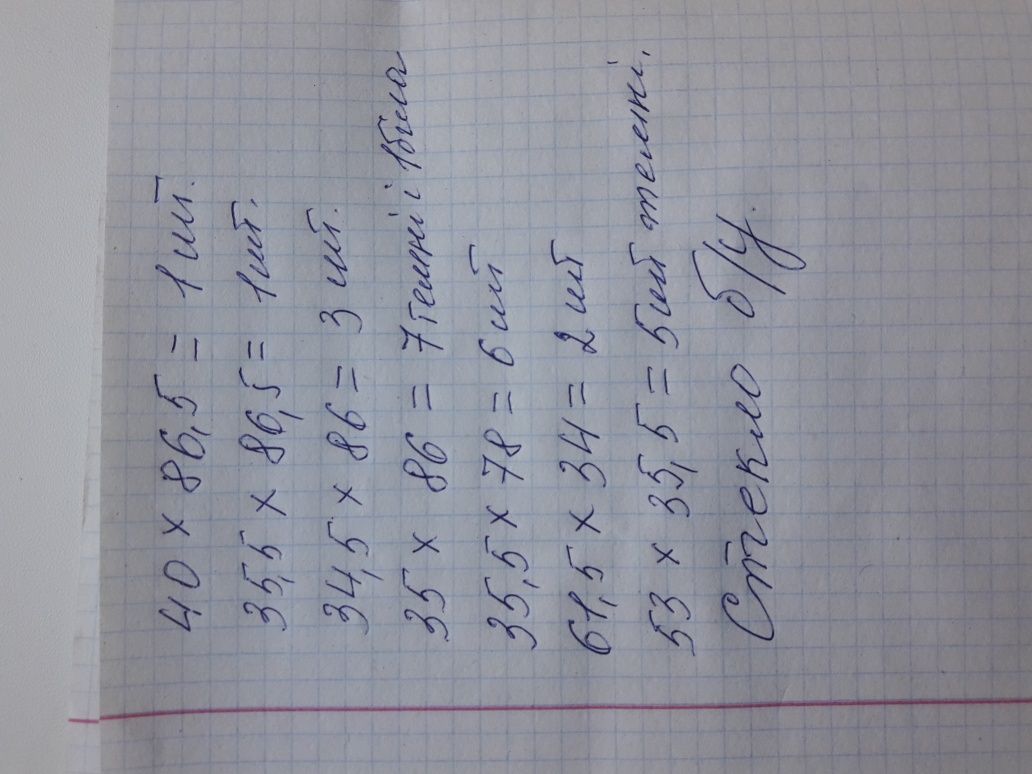 40 x 86,5 = 1 шт.
35,5 x 86,5 = 1 шт.
34,5 x 86 = 3 шт.
35 x 86 = 7 темні і 1 біла
35,5 x 78 = 6 шт
61,5 x 34 = 2 шт
53 x 35,5 = 5 шт темні.
Стекло б/у.